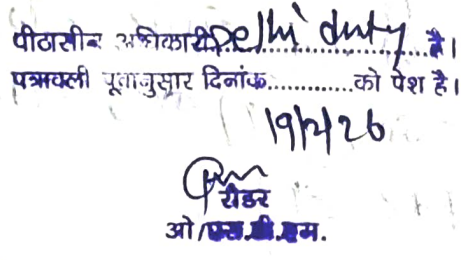 पीठासीन अधिकारी Delhi duty है।
पत्रावली पूर्वानुसार दिनांक............को पेश है।
19/2/26
रीडर
ओ/एस.डी.एम.